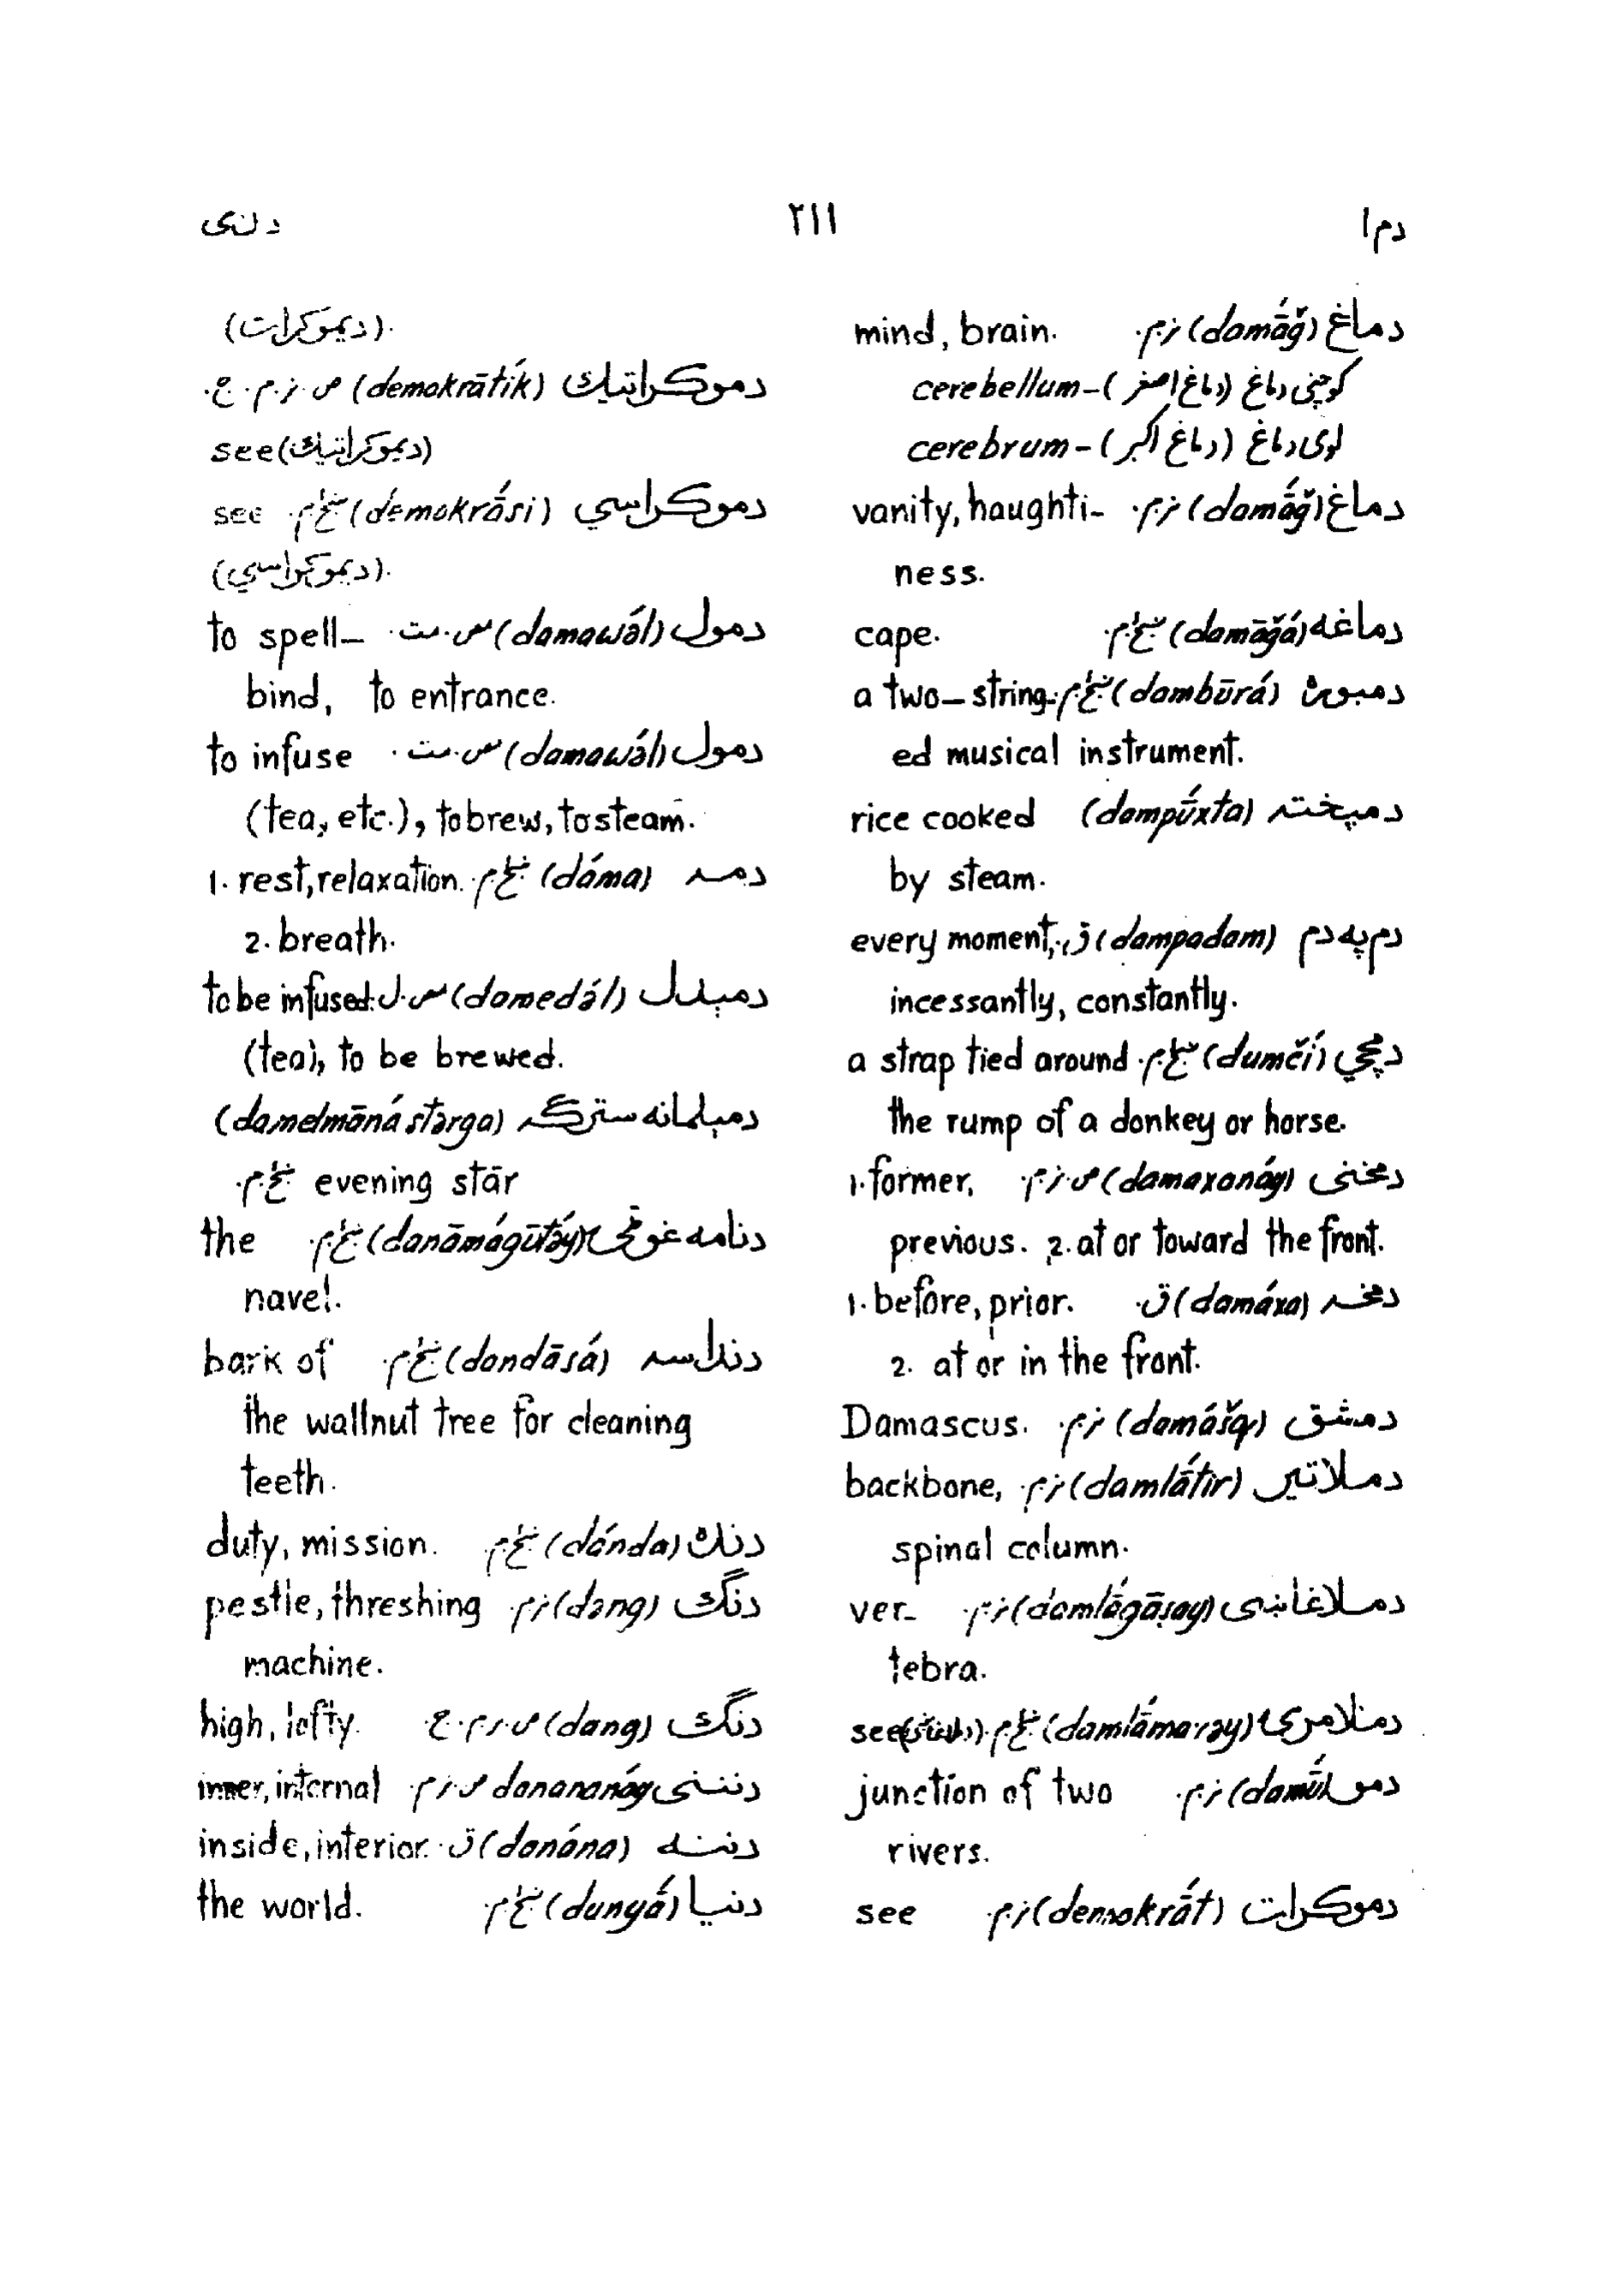 دم ا ٢١١ د ن ی
دماغ (damā́ğ) ز.م. mind, brain.
کوچنی دماغ (دماغ اصغر) -cerebellum
لوی دماغ (دماغ اکبر) -cerebrum
دماغ (damā́ğ) ز.م. vanity, haughti-
ness.
دماغه (damāğá) ښځ.م. cape.
دمبوره (dambūrá) ښځ.م. a two-string-
ed musical instrument.
دمپخته (dampúxta) rice cooked
by steam.
دم په دم (dampadam) ق. every moment,
incessantly, constantly.
دمچي (dumčí) ښځ.م. a strap tied around
the rump of a donkey or horse.
دمخنی (damaxanáy) ص.ز.م. 1. former,
previous. 2. at or toward the front.
دمخه (damáxa) ق. 1. before, prior.
2. at or in the front.
دمشق (damášq) ز.م. Damascus.
دملاتیر (damlā́tir) ز.م. backbone,
spinal column.
دملاغاښی (damlā́gāṣay) ز.م. ver-
tebra.
دملامری (damlā́marəy) ښځ.م. see
دمول (damū́l) ز.م. junction of two
rivers.
دموکرات (demokrā́t) ز.م. see
(دیموکرات).
دموکراتیک (demokrātík) ص.ز.م.ج.
see (دیموکراتیک)
دموکراسي (demokrā́si) ښځ.م. see
(دیموکراسي).
دمول (damawə́l) مص.مت. to spell-
bind, to entrance.
دمول (damawə́l) مص.مت. to infuse
(tea, etc.), to brew, to steam.
دمه (dáma) ښځ.م. 1. rest, relaxation.
2. breath.
دمېدل (damedə́l) مص.ل. to be infused
(tea), to be brewed.
دمېلمانه سترګه (damelmāná stə́rga)
ښځ.م. evening star
دنامه غوټۍ (danāmágūṭə́y) ښځ.م. the
navel.
دنداسه (dandāsá) ښځ.م. bark of
the wallnut tree for cleaning
teeth.
دنده (dánda) ښځ.م. duty, mission.
دنگ (dəng) ز.م. pestle, threshing
machine.
دنگ (dang) ص.ز.م.ج. high, lofty.
دننی danananáy ص.ز.م. inner, internal
دننه (danána) ق. inside, interior.
دنیا (dunyā́) ښځ.م. the world.